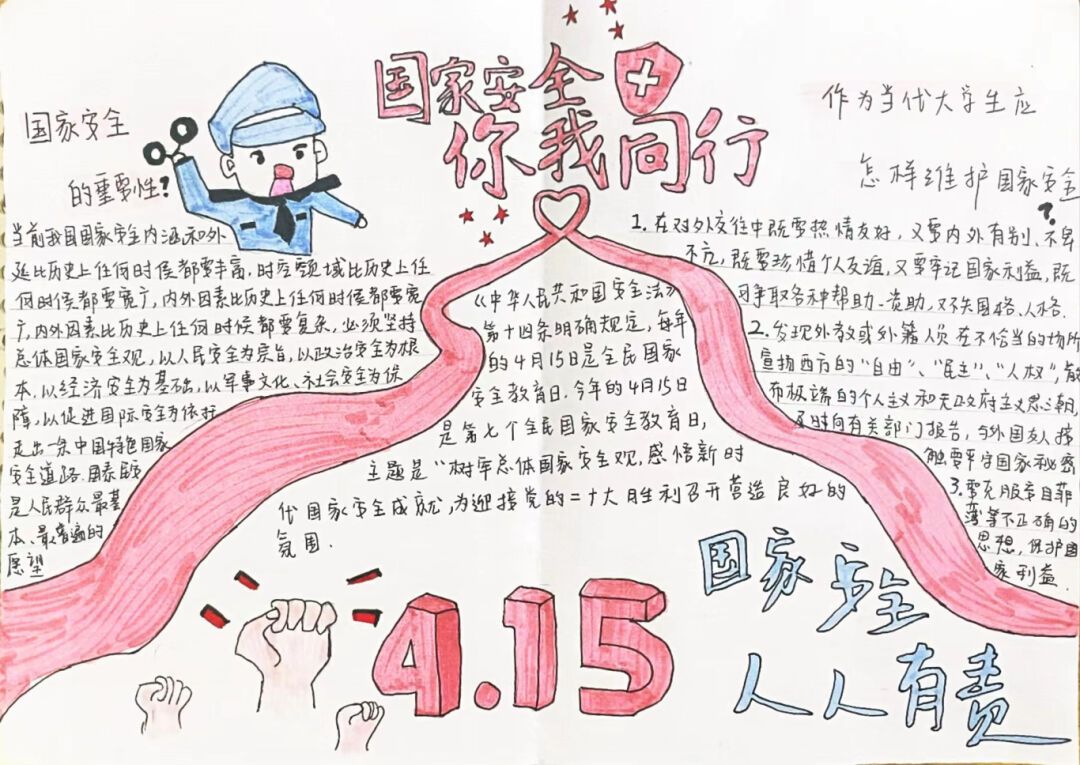 国家安全
你我同行
国家安全
的重要性?
当前我国国家安全内涵和外
延比历史上任何时候都要丰富,时空领域比历史上任
何时候都要宽广,内外因素比历史上任何时候都要宽
广,内外因素比历史上任何时候都要复杂,必须坚持
总体国家安全观,以人民安全为宗旨,以政治安全为根
本.以经济安全为基础,以军事文化、社会安全为保
障,以促进国际安全为依托
走出一条中国特色国家
安全道路.国泰民安
是人民群众最基
本、最普遍的
愿望
《中华人民共和国安全法》
第十四条明确规定,每年
的4月15日是全民国家
安全教育日.今年的4月15日
是第七个全民国家安全教育日,
主题是"树牢总体国家安全观,感悟新时
代国家安全成就,为迎接党的二十大胜利召开营造良好的
氛围.
作为当代大学生应
怎样维护国家安全?
1.在对外交往中既要热情友好,又要内外有别、不卑
不亢,既要珍惜个人友谊,又要牢记国家利益,既
可争取各种帮助、资助,又不失国格、人格.
2.发现外教或外籍人员在不恰当的场所
宣扬西方的"自由"、"民主"、"人权",散
布极端的个人主义和无政府主义思潮,
及时向有关部门报告,与外国友人接
触要严守国家秘密
3.要克服妄自菲
薄等不正确的
思想,保护国
家利益
4.15
国家安全
人人有责